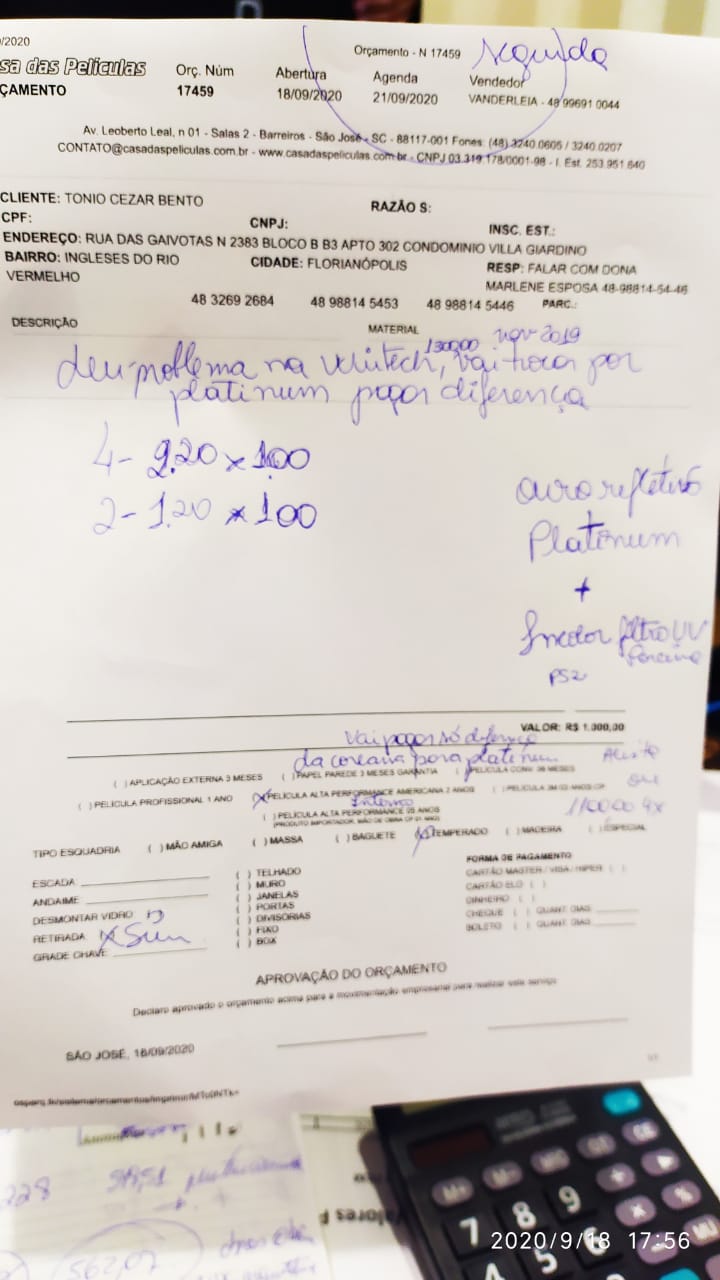 /2020
Orçamento - N 17459
Segunda
sa das Películas
ÇAMENTO
Orç. Núm
17459
Abertura
18/09/2020
Agenda
21/09/2020
Vendedor
VANDERLEIA - 48 99691 0044
Av. Leoberto Leal, n 01 - Salas 2 - Barreiros - São José - SC - 88117-001 Fones: (48) 3240.0605 / 3240.0207
CONTATO@casadaspeliculas.com.br - www.casadaspeliculas.com.br - CNPJ 03.319.178/0001-98 - I. Est. 253.951.640
CLIENTE: TONIO CEZAR BENTO
RAZÃO S:
CPF:
CNPJ:
INSC. EST.:
ENDEREÇO: RUA DAS GAIVOTAS N 2383 BLOCO B B3 APTO 302 CONDOMINIO VILLA GIARDINO
BAIRRO: INGLESES DO RIO VERMELHO
CIDADE: FLORIANÓPOLIS
RESP: FALAR COM DONA
MARLENE ESPOSA 48-98814-54-46
48 3269 2684 48 98814 5453 48 98814 5446 PARC.:
DESCRIÇÃO
MATERIAL
1300,00 nov-2019
deu problema na , vai trocar por
platinum pagar diferença
4- 2.20 x 1.00
2- 1.20 x 1.00
refletivo
Platinum
+
Incolor filtro UV
PS2
VALOR: R$ 1.000,00
Vai pagar só diferença
da coreana para platinum
( ) APLICAÇÃO EXTERNA 3 MESES ( ) PAPEL PAREDE 3 MESES GARANTIA ( ) PELÍCULA CONV. 36 MESES
( ) PELÍCULA PROFISSIONAL 1 ANO (X) PELÍCULA ALTA PERFORMANCE AMERICANA 2 ANOS
Interno
( ) PELÍCULA ALTA PERFORMANCE 05 ANOS
1100,00 4x
TIPO ESQUADRIA ( ) MÃO AMIGA ( ) MASSA ( ) BAGUETE (X) TEMPERADO ( ) MADEIRA ( ) ESPECIAL
ESCADA
ANDAIME
DESMONTAR VIDRO
RETIRADA X Sim
GRADE CHAVE
( ) TELHADO
( ) MURO
( ) JANELAS
( ) PORTAS
( ) DIVISÓRIAS
( ) FIXO
( ) BOX
FORMA DE PAGAMENTO
CARTÃO MASTER / VISA / HIPER ( )
CARTÃO ELO ( )
DINHEIRO ( )
CHEQUE ( ) QUANT DIAS
BOLETO ( ) QUANT DIAS
APROVAÇÃO DO ORÇAMENTO
Declaro aprovado o orçamento acima para a movimentação empresarial para realizar este serviço
SÃO JOSÉ, 18/09/2020
1/1
228
562,07
7 8 9
4 5 6
M+ M-
MU
2020/9/18 17:56